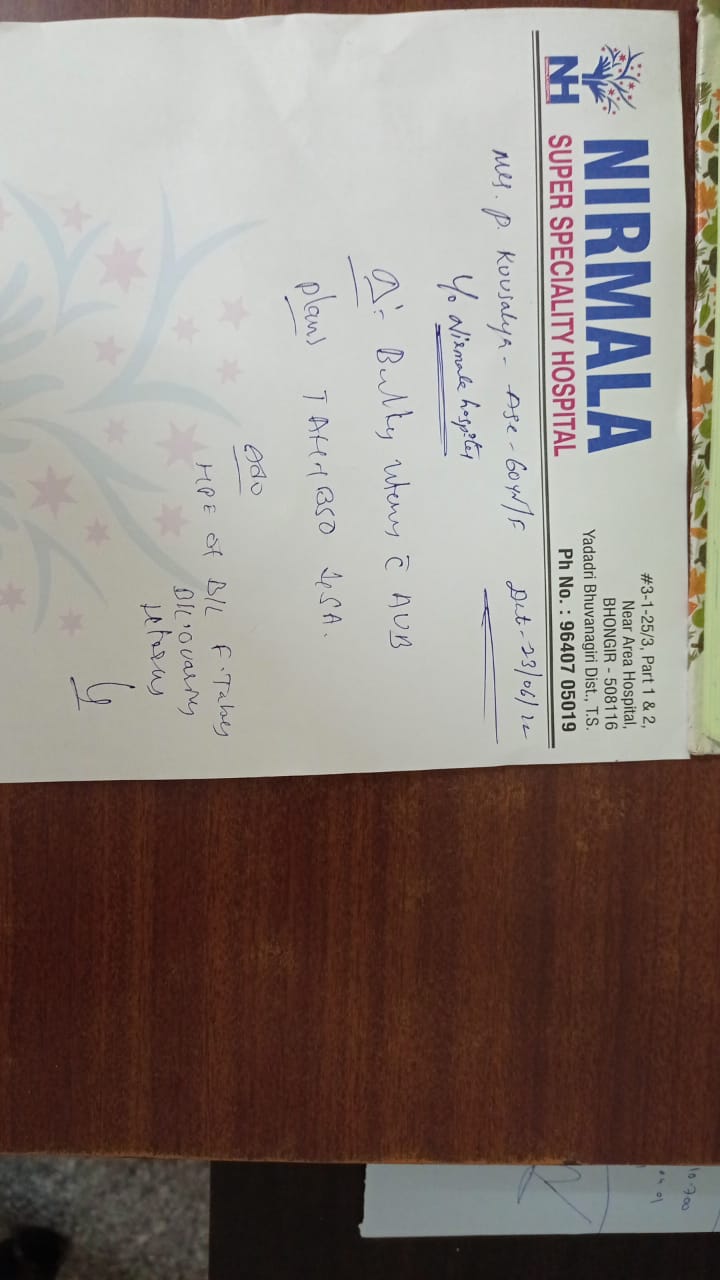 NH
NIRMALA
SUPER SPECIALITY HOSPITAL
#3-1-25/3, Part 1 & 2,
Near Area Hospital,
BHONGIR - 508116
Yadadri Bhuvanagiri Dist., T.S.
Ph No. : 96407 05019
Mrs. P. Kousalya - Age - 60yr/F Dat - 23/06/22
Nirmala hospital
Bulky uterus c̄ AUB
Plan TAH+BSO
Adv
HPE of B/L F. Tubes
B/L ovaries
uterus